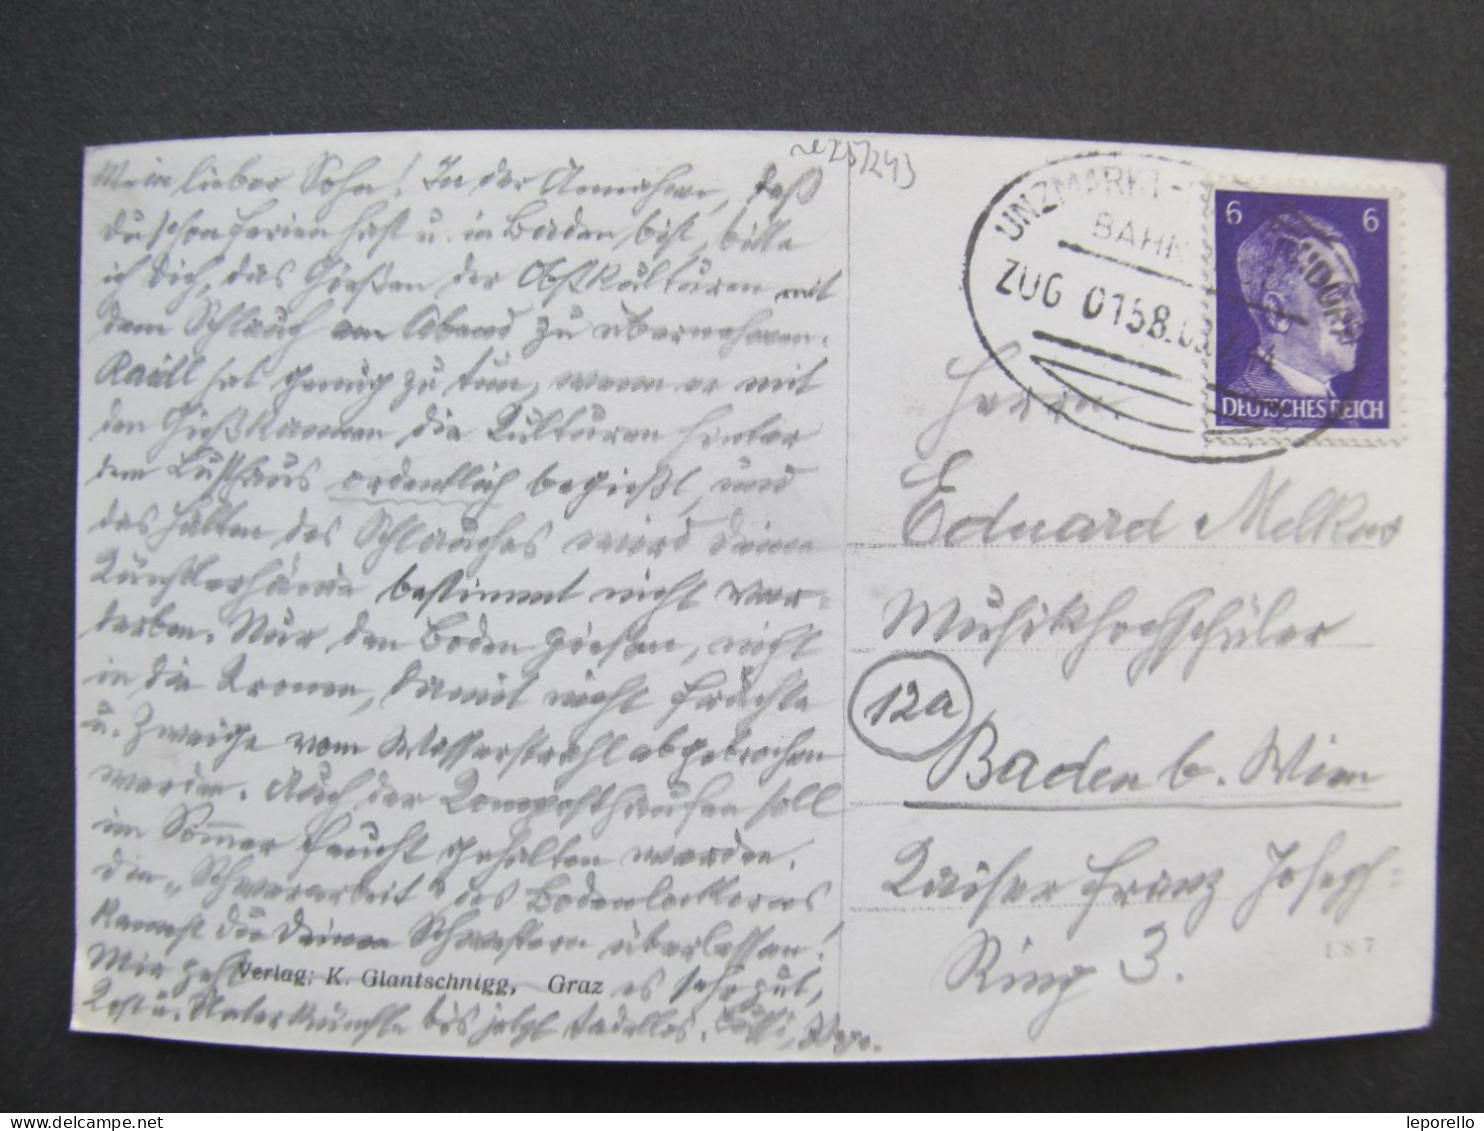 Mein lieber Sohn! In der Annahme, daß
du schon Ferien hast u. in Baden bist, bitte
ich dich, das Gießen der Obstkulturen mit
dem Schlauch am Abend zu übernehmen.
hat genug zu tun, wenn er mit
den Gießkannen die Kulturen hinter
dem Lusthaus ordentlich begießt, und
das Halten des Schlauches wird deine
Künstlerhände bestimmt nicht ver-
derben. Nur den Boden gießen, nicht
in die Kronen, damit nicht Früchte
u. Zweige vom Wasserstrahl abgebrochen
werden. Auch der Komposthaufen soll
im Sommer feucht gehalten werden.
Die „Schwerarbeit" des Bodenlockerns
kannst du deinen Schwestern überlassen!
Mir geht es sehr gut,
Kost u. Unterkünfte bis jetzt tadellos.
Verlag: K. Glantschnigg, Graz
UNZMARKT-
BAHN
ZUG 0158
6 6
DEUTSCHES REICH
Herrn
Eduard Melkus
Musikhochschüler
12a
Baden b. Wien
Kaiser Franz Joseph=
Ring 3.
187
leporello